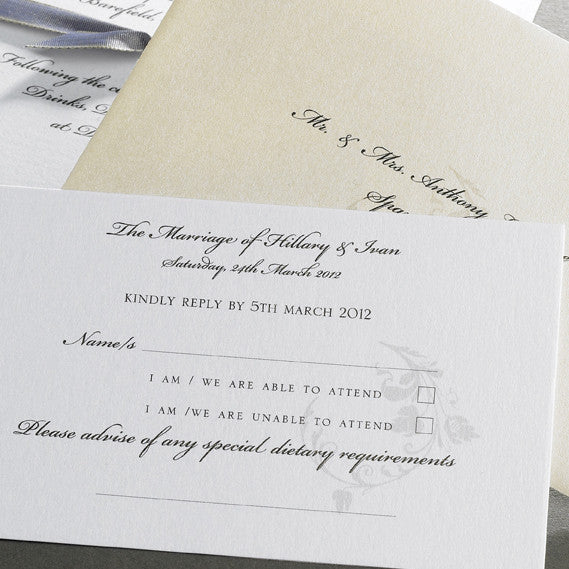 Barefield,
Following the
Drinks,
at
Mr. & Mrs. Anthony
The Marriage of Hillary & Ivan
Saturday, 24th March 2012
KINDLY REPLY BY 5TH MARCH 2012
Name/s
I AM / WE ARE ABLE TO ATTEND
I AM /WE ARE UNABLE TO ATTEND
Please advise of any special dietary requirements